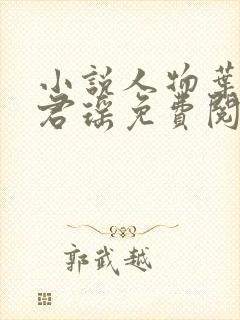 小说人物葉
君瑶免費閱
郭武越